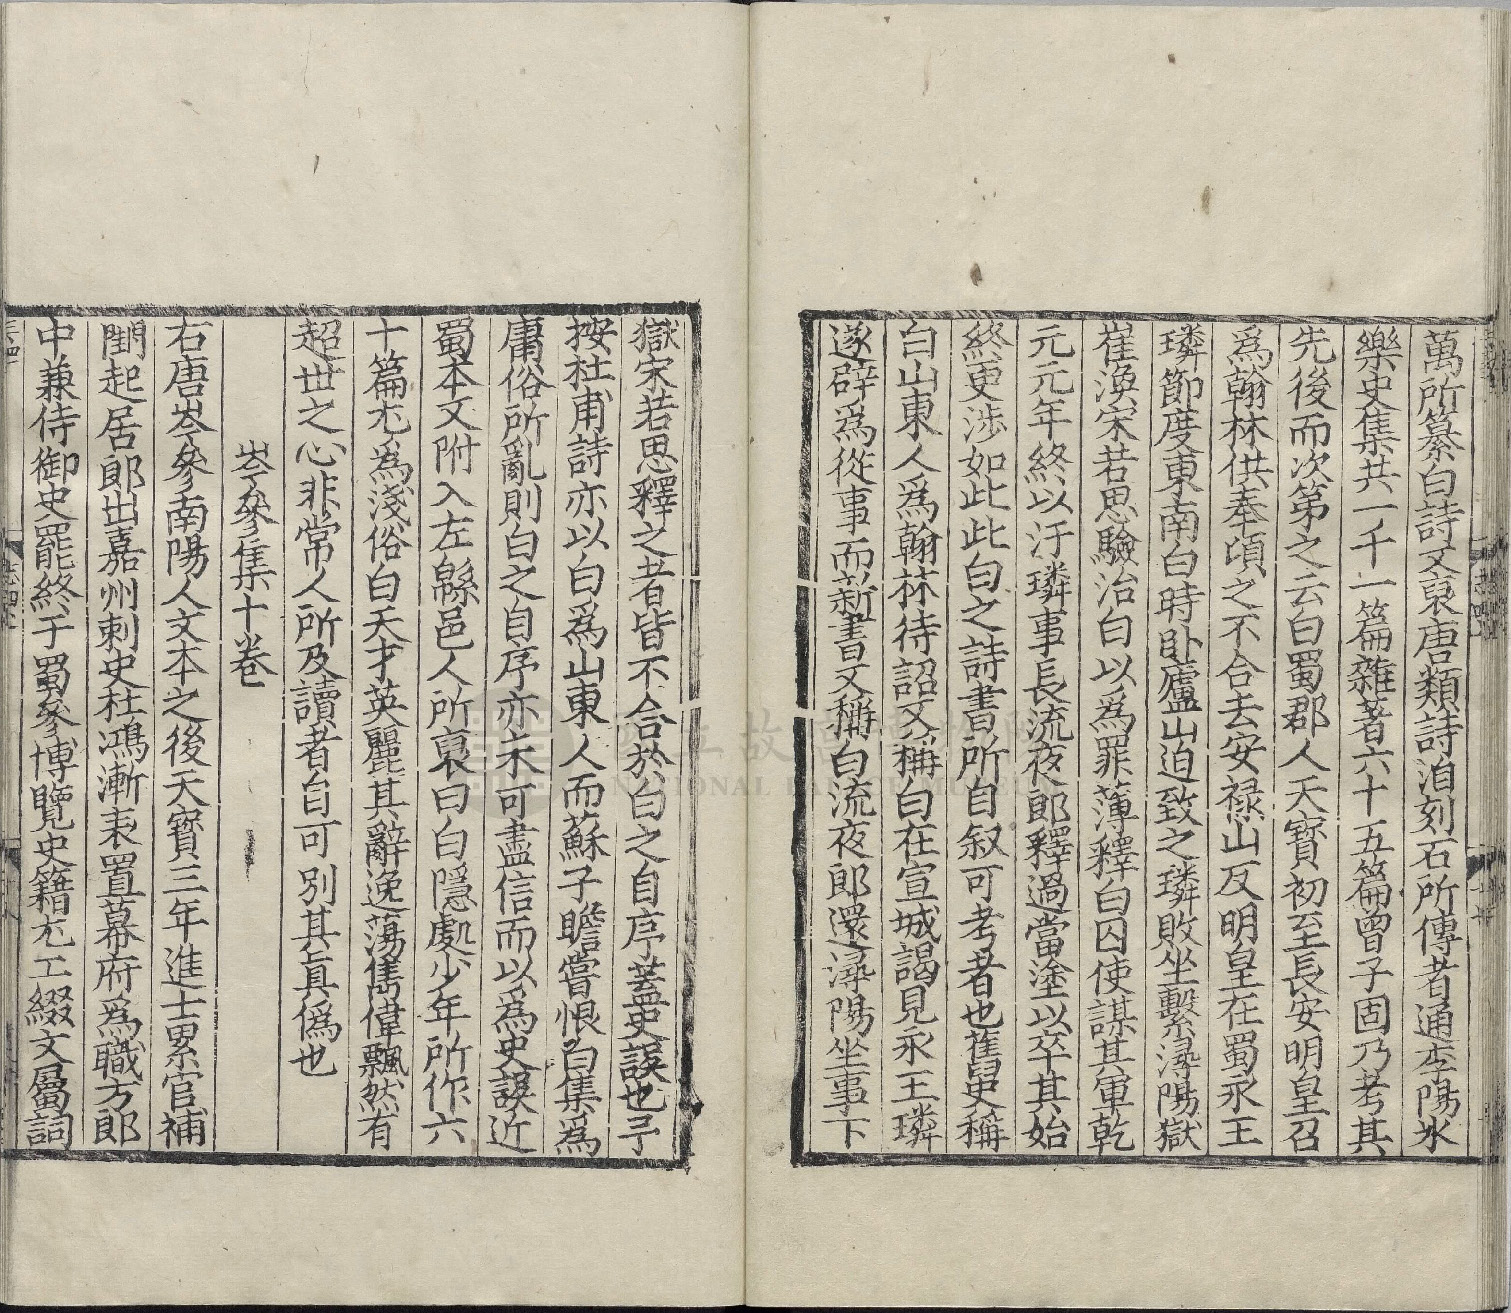 萬所纂白詩又裒唐類詩洎刻石所傳者通李陽氷
樂史集共一千一篇雜著六十五篇曾子固乃考其
先後而次第之云白蜀郡人天寶初至長安明皇召
爲翰林供奉頃之不合去安禄山反明皇在蜀永王
璘節度東南白時卧廬山迫致之璘敗坐繫潯陽獄
崔渙宋若思驗治白以爲罪薄釋白囚使謀其軍乾
元元年終以汙璘事長流夜郎釋過當塗以卒其始
終更涉如此此白之詩書所自叙可考者也舊史稱
白山東人爲翰林待詔又稱白在宣城謁見永王璘
遂辟爲從事而新書又稱白流夜郎還潯陽坐事下
獄宋若思釋之者皆不合於白之自序葢史誤也予
按杜甫詩亦以白爲山東人而蘇子瞻嘗恨白集爲
庸俗所亂則白之自序亦未可盡信而以爲史誤近
蜀本又附入左緜邑人所裒曰白隱處少年所作六
十篇尤爲淺俗白天才英麗其辭逸蕩雋偉飄然有
超世之心非常人所及讀者自可别其真僞也
岑參集十卷
右唐岑參南陽人文本之後天寶三年進士累官補
闕起居郎出嘉州刺史杜鴻漸表置幕府爲職方郎
中兼侍御史罷終于蜀參博覽史籍尤工綴文屬詞
志四上
國立故宮博物院
NATIONAL PALACE MUSEUM